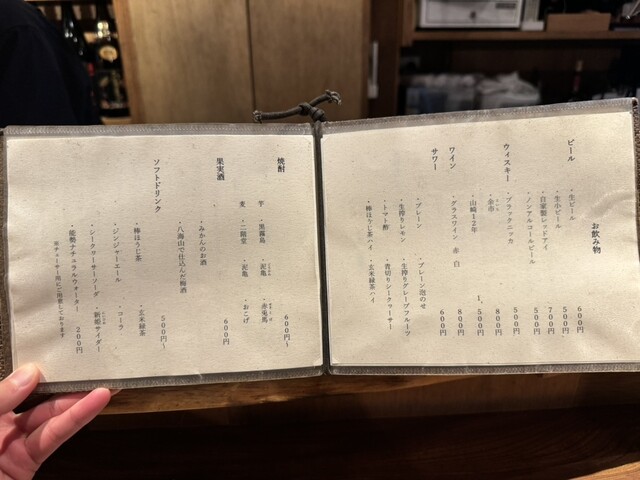 お飲み物
ビール
・生ビール 600円
・生小ビール 500円
・自家製レッドアイ 700円
・ノンアルコールビール 500円
ウィスキー
・ブラックニッカ 500円
・余市 800円
・山崎12年
ワイン
・グラスワイン 赤 白 800円
サワー 600円
・プレーン ・プレーン泡のせ
・生搾りレモン ・生搾りグレープフルーツ
・トマト酢 ・青切りシークヮーサー
・棒ほうじ茶ハイ ・玄米緑茶ハイ
焼酎 600円〜
芋 ・黒霧島 ・泥亀 ・赤兎馬
麦 ・二階堂 ・泥亀 ・おこげ
果実酒 600円
・みかんのお酒
・八海山で仕込んだ梅酒
ソフトドリンク 500円〜
・棒ほうじ茶 ・玄米緑茶
・ジンジャーエール ・コーラ
・シークワーサーソーダ ・新姫サイダー
・能勢ナチュラルウォーター 200円
※チェーサー用にご用意しております